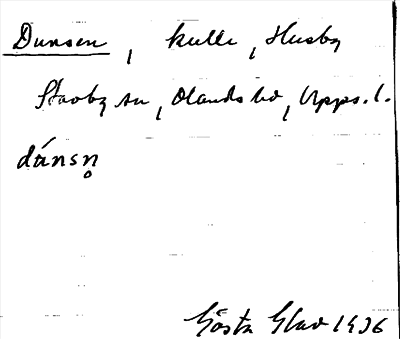 Dunsen, kulle, Husby
Stavby sn, Olands hd, Upps. l.
dúnsn̥
Gösta Glad 1936